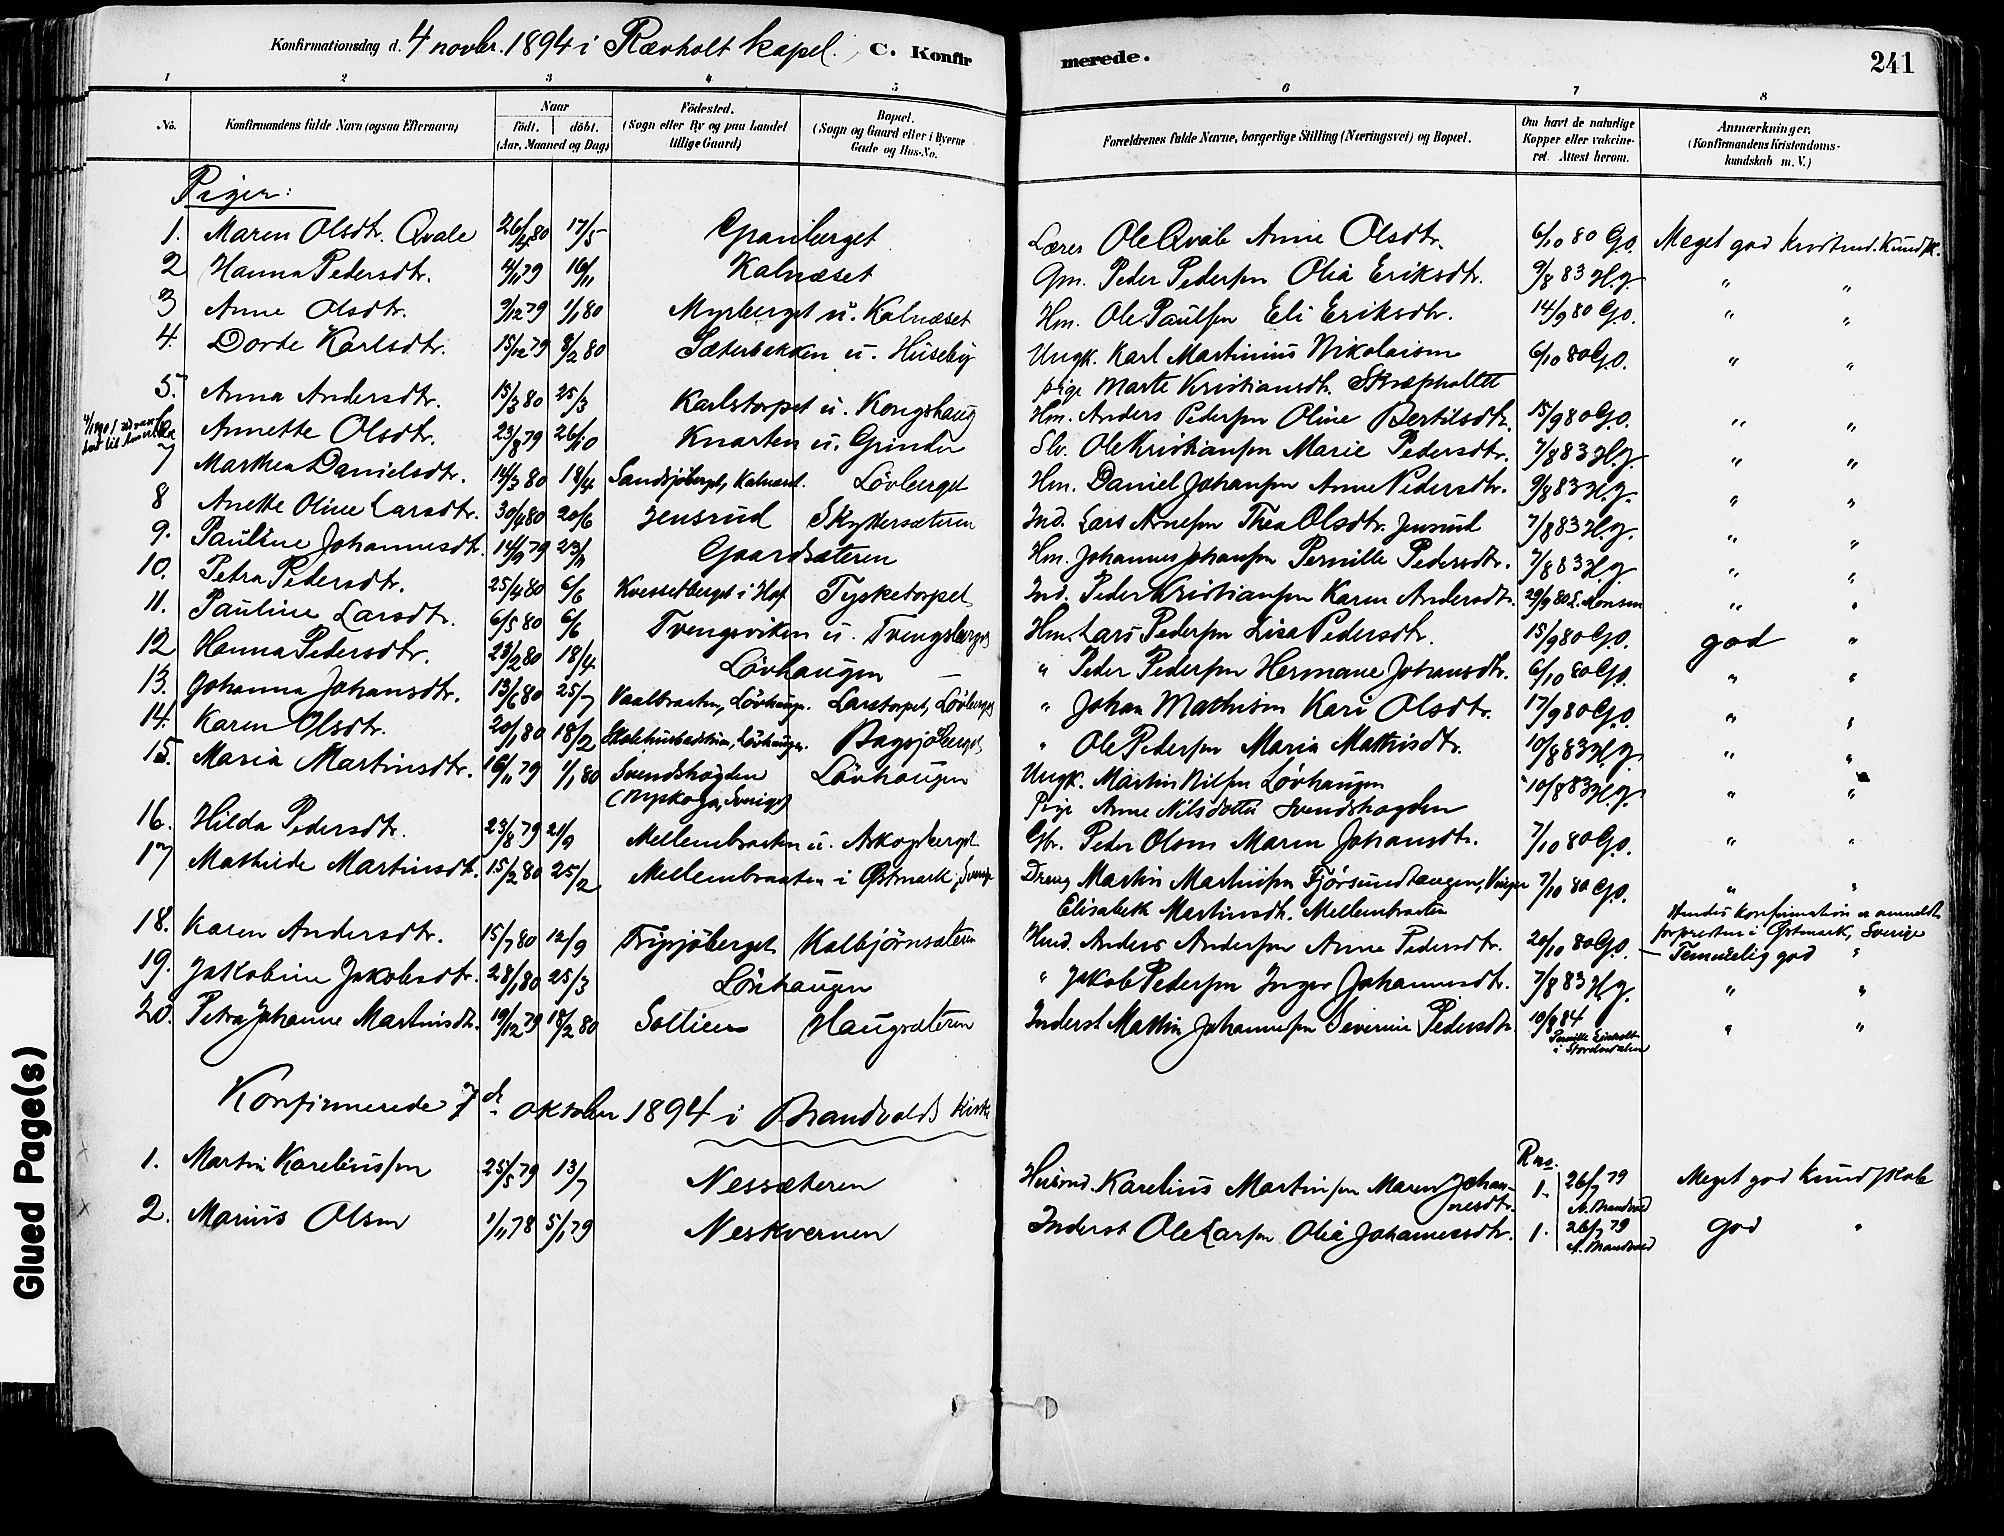 Konfirmationsdag d. 4 novbr. 1894 i Rævholt kapel. C. Konfirmerede. 241
1 2 3 4 5 6 7 8
No. Konfirmandens fulde Navn (ogsaa Efternavn) Naar födt. döbt. (Aar, Maaned og Dag) Födested. (Sogn eller By og paa Landet tillige Gaard) Bopæl. (Sogn og Gaard eller i Byerne Gade og Hus-No. Forældrenes fulde Navne, borgerlige Stilling (Næringsvei) og Bopæl. Om havt de naturlige Kopper eller vakcineret. Attest herom. Anmærkninger. (Konfirmandens Kristendomskundskab m. V.)
Piger:
1. Maren Olsdtr. Qvale 26/4 80 17/5 Granberget Lærer Ole Qvale Anne Olsdtr. 6/10 80 G.O. Meget god kristend. kundsk.
2 Hanna Pedersdtr. 4/11 79 16/11 Kalnæset Gm. Peder Pedersen Olia Eriksdtr. 9/8 83 H.G. " "
3 Anne Olsdtr. 9/12 79 1/1 80 Myrberget u. Kalnæset Hm. Ole Paulsen Eli Eriksdtr. 14/9 80 G.O. " "
4. Dorte Karlsdtr. 15/12 79 8/2 80 Sæterbakken u. Huseby Ungk. Karl Martinius Nikolaisen 6/10 80 G.O. " "
pige Marte Kristiansdtr.
5. Anna Andersdtr. 15/3 80 25/3 Karlstorpet u. Kongshaug Hm. Anders Pedersen Oline Bertilsdtr. 15/9 80 G.O. " "
Annette Olsdtr. 23/8 79 26/10 Knarten u. Grinder Slv. Ole Kristiansen Marie Pedersdtr. 7/8 83 H.G. " "
7 Marthea Danielsdtr. 14/3 80 18/4 Sandsjöberget, Kalnæset. Lövberget Hm. Daniel Johansen Anne Pedersdtr. 9/8 83 H.G. " "
8 Anette Oline Larsdtr. 30/4 80 20/6 Jensrud Skyttersæteren Ind. Lars Arnesen Thea Olsdtr. Jensrud 7/8 83 H.G. " "
9. Pauline Johannesdt. 14/9 79 23/11 Gaardsæteren Hm. Johannes Johansen Pernille Pedersdtr. 7/8 83 H.G. " "
10. Petra Pedersdtr. 25/4 80 6/6 Kvessetberget i Hof Tysketorpet Ind. Peder Kristiansen Karen Andersdtr. 29/9 80 L. Monsen " "
11. Pauline Larsdtr. 6/5 80 6/6 Tvengsviken u. Tvengsberget Hm. Lars Pedersen Lisa Pedersdtr. 15/9 80 G.O. god "
12 Hanna Pedersdtr. 23/2 80 18/4 Lövhaugen " Peder Pedersen Hermane Johansdtr. 6/10 80 G.O. " "
13. Johanna Johansdtr. 13/6 80 25/7 Vaalbraaten, Lövhaugen. Larstorpet, Lövberget " Johan Mathisen Kari Olsdtr. 17/9 80 G.O. " "
14. Karen Olsdtr. 20/1 80 18/2 Lövhaugen. Bagsjöberget " Ole Pedersen Maria Mathisdtr. 10/8 83 H.G. " "
15. Maria Martinsdtr. 16/11 79 1/1 80 Svendshøgden Lövhaugen Ungk. Martin Nilsen Lövhaugen 10/8 83 H.G. " "
(Nyskoga, Sverige) Pige Anne Nilsdotter Svendshogden
16. Hilda Pedersdtr. 23/8 79 21/9 Mellembraaten u. Askogsberget Gbr. Peder Olsen Maren Johansdtr. 7/10 80 G.O. " "
17 Mathilde Martinsdt. 15/2 80 25/2 Mellembraaten i Østmark, Sverige Dreng Martin Martinsen Fjörsundtangen, Vinger 7/10 80 G.O. " "
Elisabeth Martinsdtr. Mellembraaten
Hendes konfirmation er anmeldt
for presten i Østmark, Sverige
18. Karen Andersdtr. 15/7 80 12/9 Tripsjöberget Kalbjörnsæteren Husd. Anders Andersen Anne Pedersdtr. 20/10 80 G.O. — Temmelig god "
19. Jakobine Jakobsdtr. 28/1 80 25/3 Lövhaugen " Jakob Pedersen Inger Johannesdtr. 7/8 83 H.G. " "
20. Petra Johanne Martinsdtr. 19/12 79 18/2 80 Soltien Haugsæteren Inderst Martin Johannesen Severine Pedersdtr. 10/8 84 " "
Konfirmerede 7de oktober 1894 i Brandvolds kirke
Rno.
1. Martin Kareliussen 25/5 79 13/7 Nessæteren Husmd. Karelius Martinsen Maren Johannesdtr. 1. 26/7 79 N. Brandvold Meget god kundskab
2. Marius Olsen 1/11 78 5/1 79 Neskvernen Inderst Ole Larsen Olia Johannesdtr. 1. 26/7 79 N. Brandvold god "
Glued Page(s)